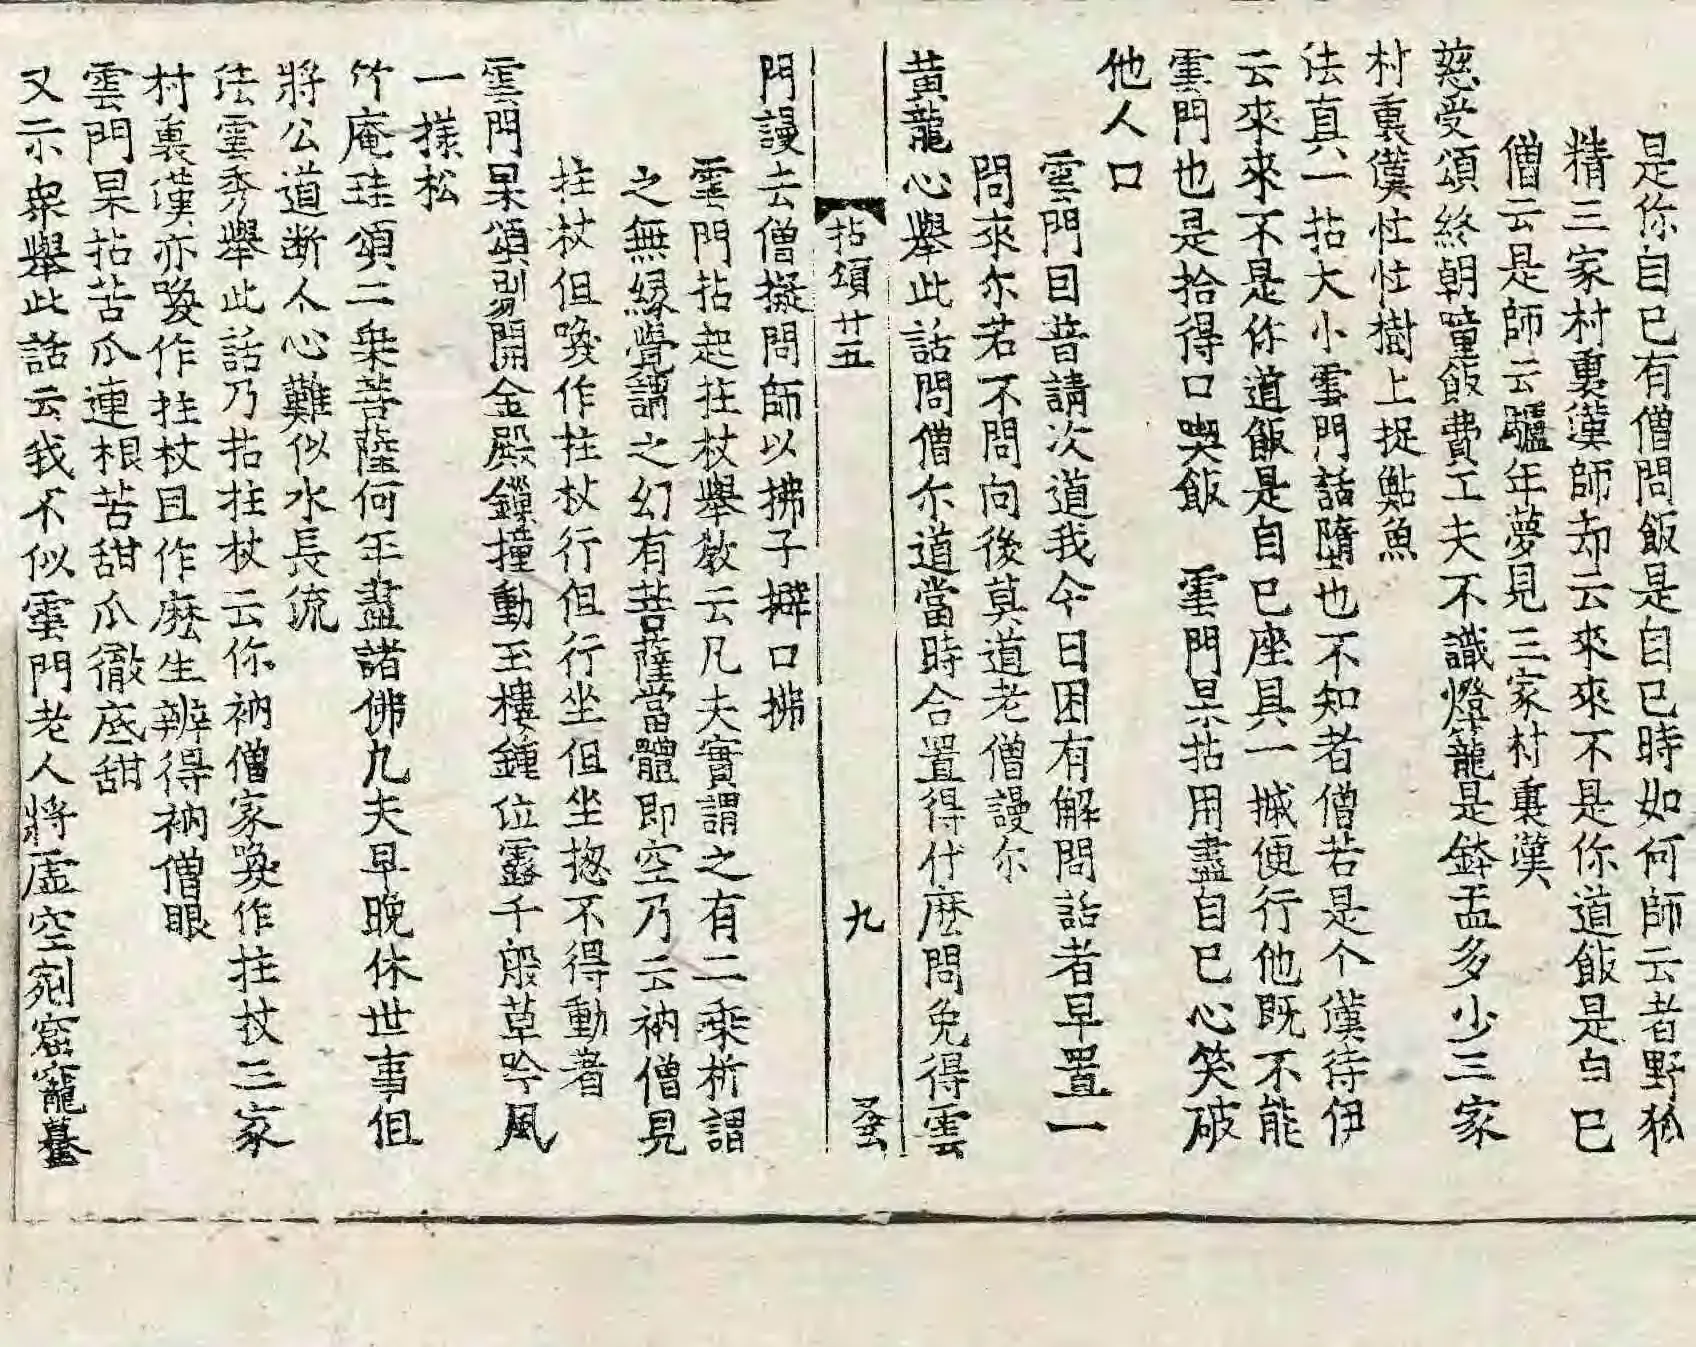 是你自己有僧問飯是自己時如何師云者野狐
精三家村裏漢師却云來來不是你道飯是自己
僧云是師云驢年夢見三家村裏漢
慈受頌終朝噇飯費工夫不識燈籠是鉢盂多少三家
村裏漢忙忙樹上捉鮎魚
法真一拈大小雲門話墮也不知者僧若是个漢待伊
云來來不是你道飯是自己座具一搣便行他既不能
雲門也是拾得口喫飯　雲門杲拈用盡自己心笑破
他人口
雲門因昔請次道我今日困有解問話者早置一
問來尓若不問向後莫道老僧謾尓
黃龍心舉此話問僧尓道當時合置得什麽問免得雲
拈頌廿五　九
門謾去僧擬問師以拂子擗口拂
雲門拈起拄杖舉教云凡夫實謂之有二乘析謂
之無緣覺謂之幻有菩薩當體即空乃云衲僧見
拄杖但喚作拄杖行但行坐但坐揔不得動着
雲門杲頌剔開金殿鏁撞動玉樓鍾位露千般草吟風
一㨾松
竹庵珪頌二乘菩薩何年盡諸佛凡夫早晚休世事但
將公道断人心難似水長流
法雲秀舉此話乃拈拄杖云你衲僧家喚作拄杖三家
村裏漢亦喚作拄杖且作麽生辨得衲僧眼
雲門杲拈苦瓜連根苦甜瓜徹底甜
又示衆舉此話云我不似雲門老人將虛空剜窟窿驀